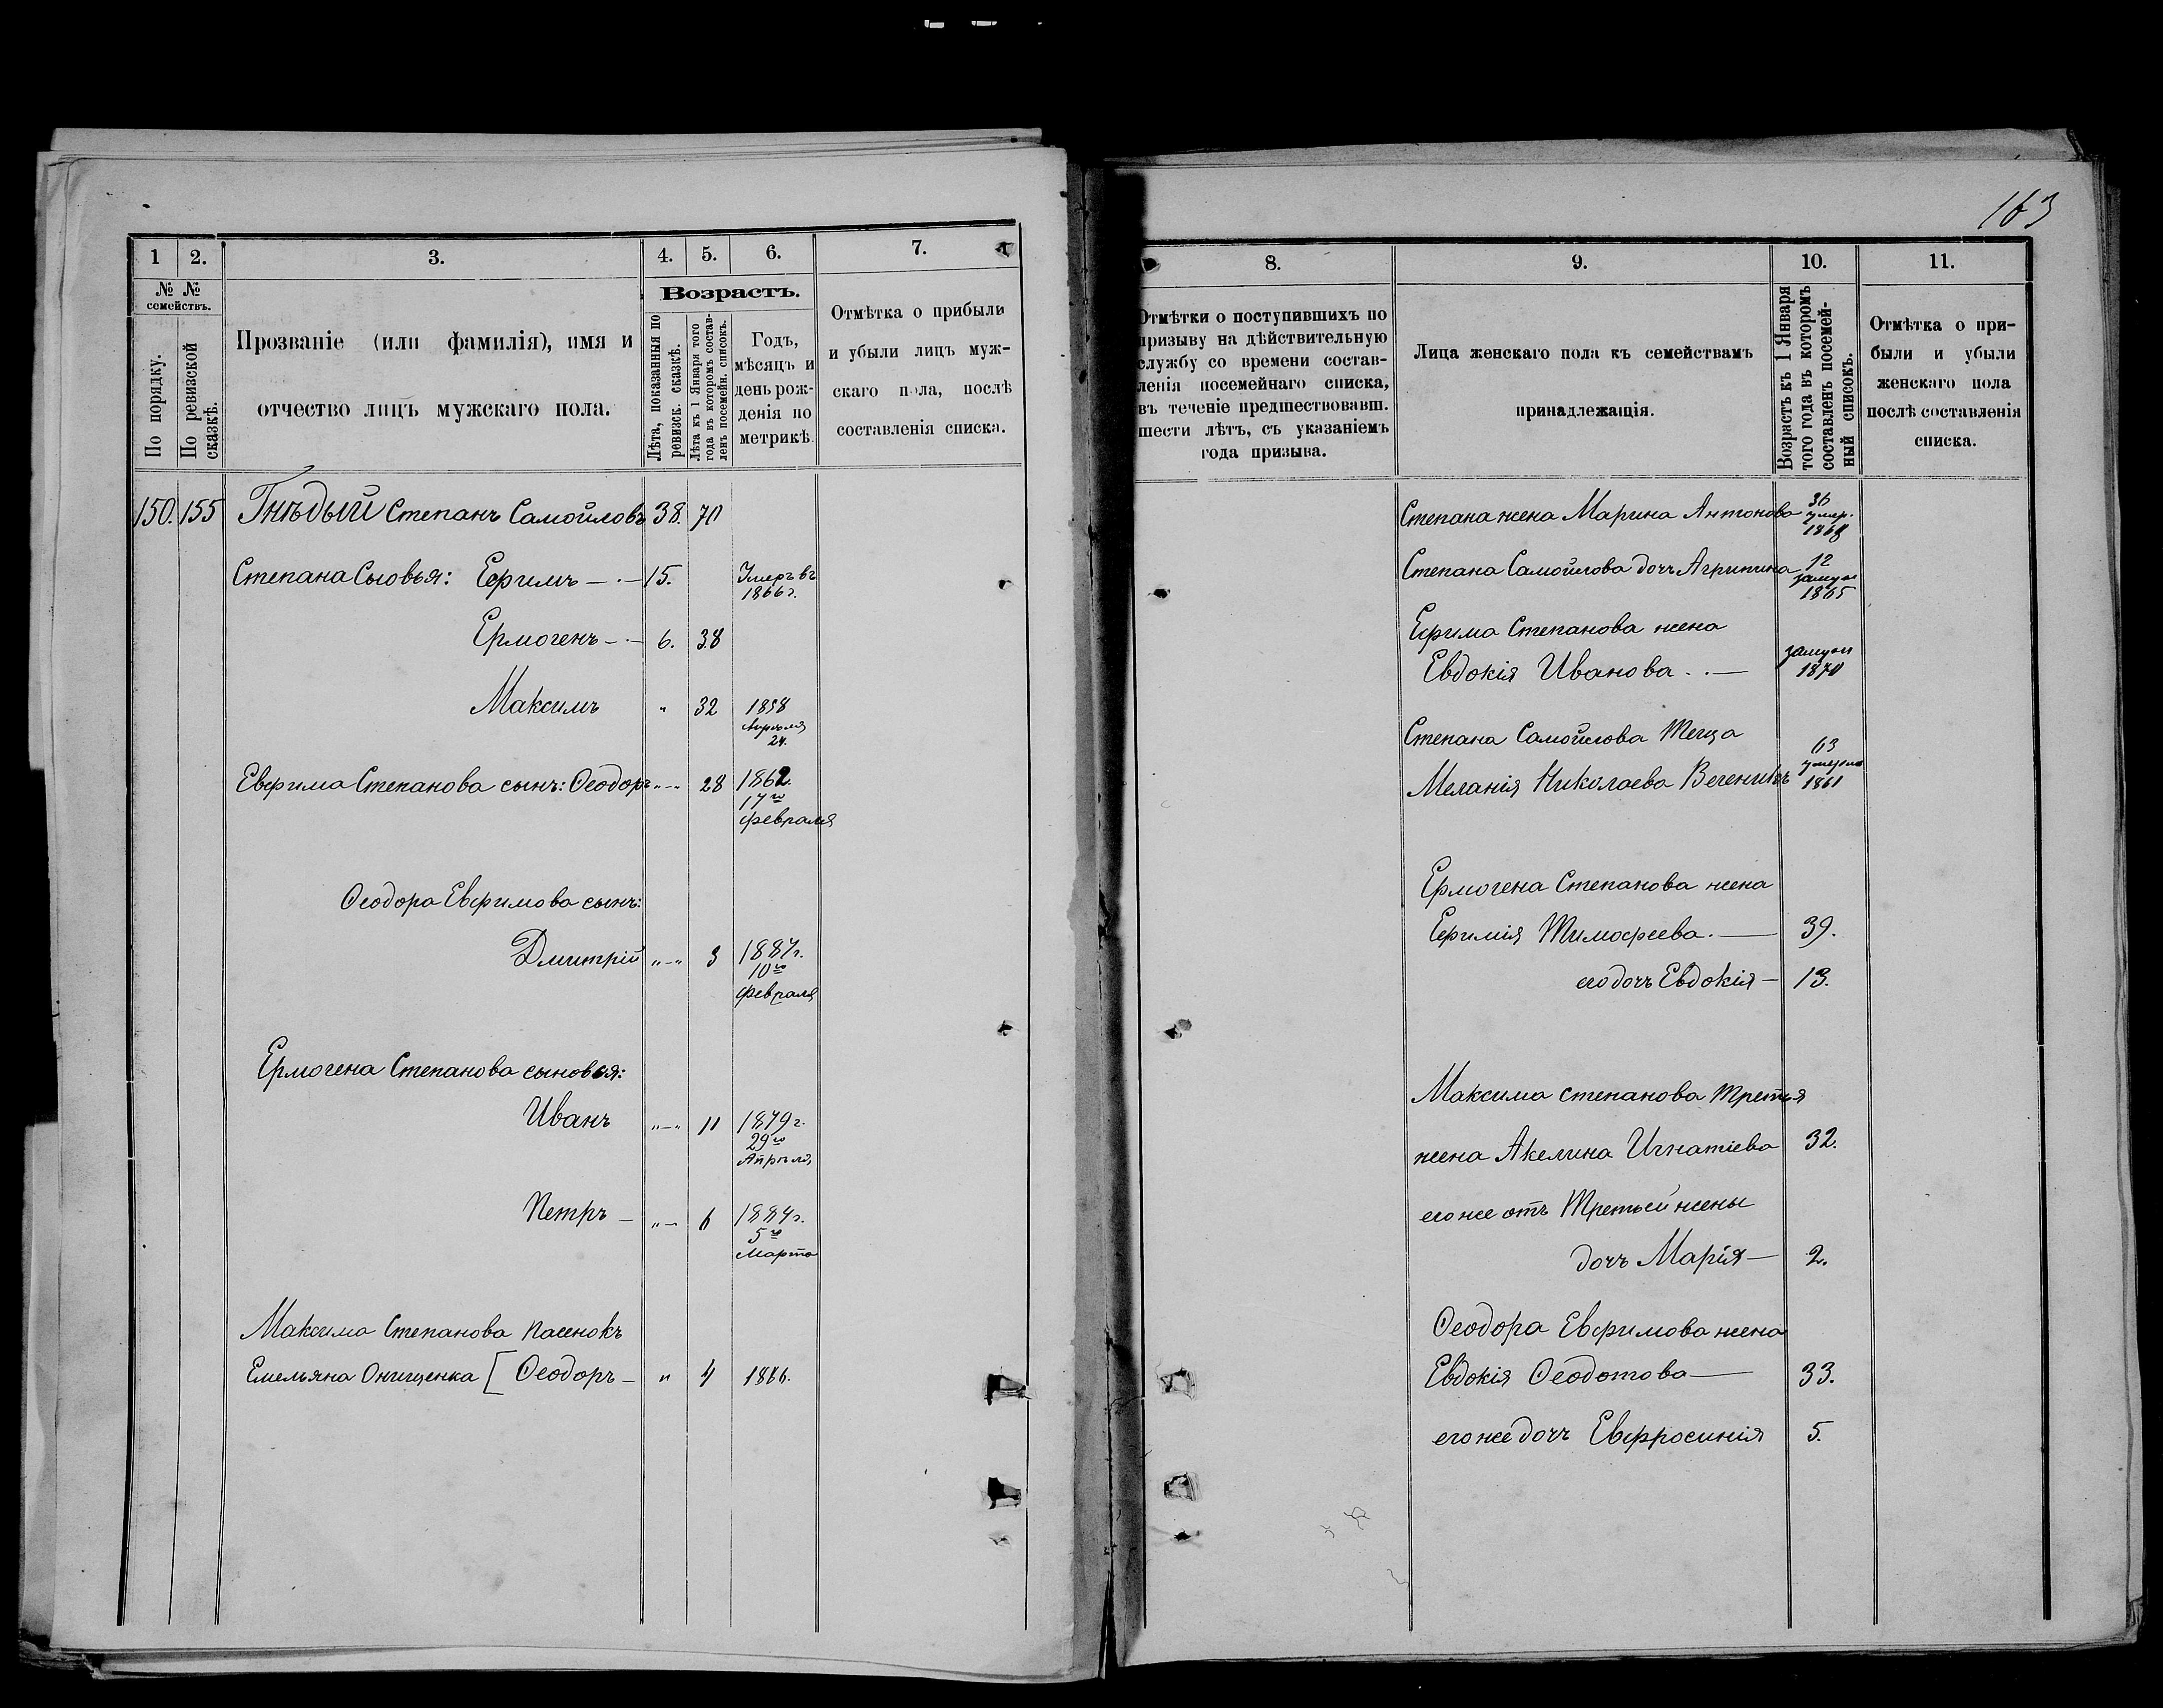 163
1 2. 3. 4. 5. 6. 7.
№ № семействъ.
По порядку.
По ревизской сказкѣ.
Прозваніе (или фамилія), имя и
отчество лицъ мужскаго пола.
Возрастъ.
Лѣта, показанныя по ревизск. сказкѣ.
Лѣта къ 1 Января того года въ которомъ составленъ посемейн. списокъ.
Годъ,
мѣсяцъ и
день рож-
денія по
метрикѣ.
Отмѣтка о прибыли
и убыли лицъ муж-
скаго пола, послѣ
составленія списка.
150. 155 Гнѣдый Степанъ Самойловъ 38. 70
Степана Сыовья: Ефримъ — . — 15. Умеръ въ
1866 г.
Ермогенъ — . — 6. 38
Максимъ " 32 1858
Апрѣля
24.
Евфрима Степанова сынъ: Ѳеодоръ "—" 28 1862.
17го
февраля
Ѳеодора Евфримова сынъ:
Дмитрій "—" 3 1887 г.
10го
февраля
Ермогена Степанова сыновья:
Иванъ "—" 11 1879 г.
29го
Апрѣля
Петръ — "— 6 1884 г.
5го
Марта
Максима Степанова пасенокъ
Емельяна Онищенка [ Ѳеодоръ — " 4 1886.
8. 9. 10. 11.
Отмѣтки о поступившихъ по
призыву на дѣйствительную
службу со времени состав-
ленія посемейнаго списка,
въ теченіе предшествовавш.
шести лѣтъ, съ указаніемъ
года призыва.
Лица женскаго пола къ семействамъ
принадлежащія.
Возрастъ къ 1 Января
того года въ которомъ
составленъ посемей-
ный списокъ.
Отмѣтка о при-
были и убыли
женскаго пола
послѣ составленія
списка.
Степана жена Марина Антонова 36
умер.
1868
Степана Самойлова дочъ Агрипина 12
замуж
1865
Ефрима Степанова жена
Евдокія Иванова . . — замуж
1870
Степана Самойлова Теща
Меланія Николаева 63
умерла
1861
Ермогена Степанова жена
Ефимія Тимофеева. — 39.
его дочъ Евдокія — 13.
Максима степанова Третья
жена Акелина Игнатіева 32.
его же отъ Третьей жены
дочъ Марія — 2.
Ѳеодора Евфримова жена
Евдокія Ѳеодотова — 33.
его же дочъ Евфросинія 5.